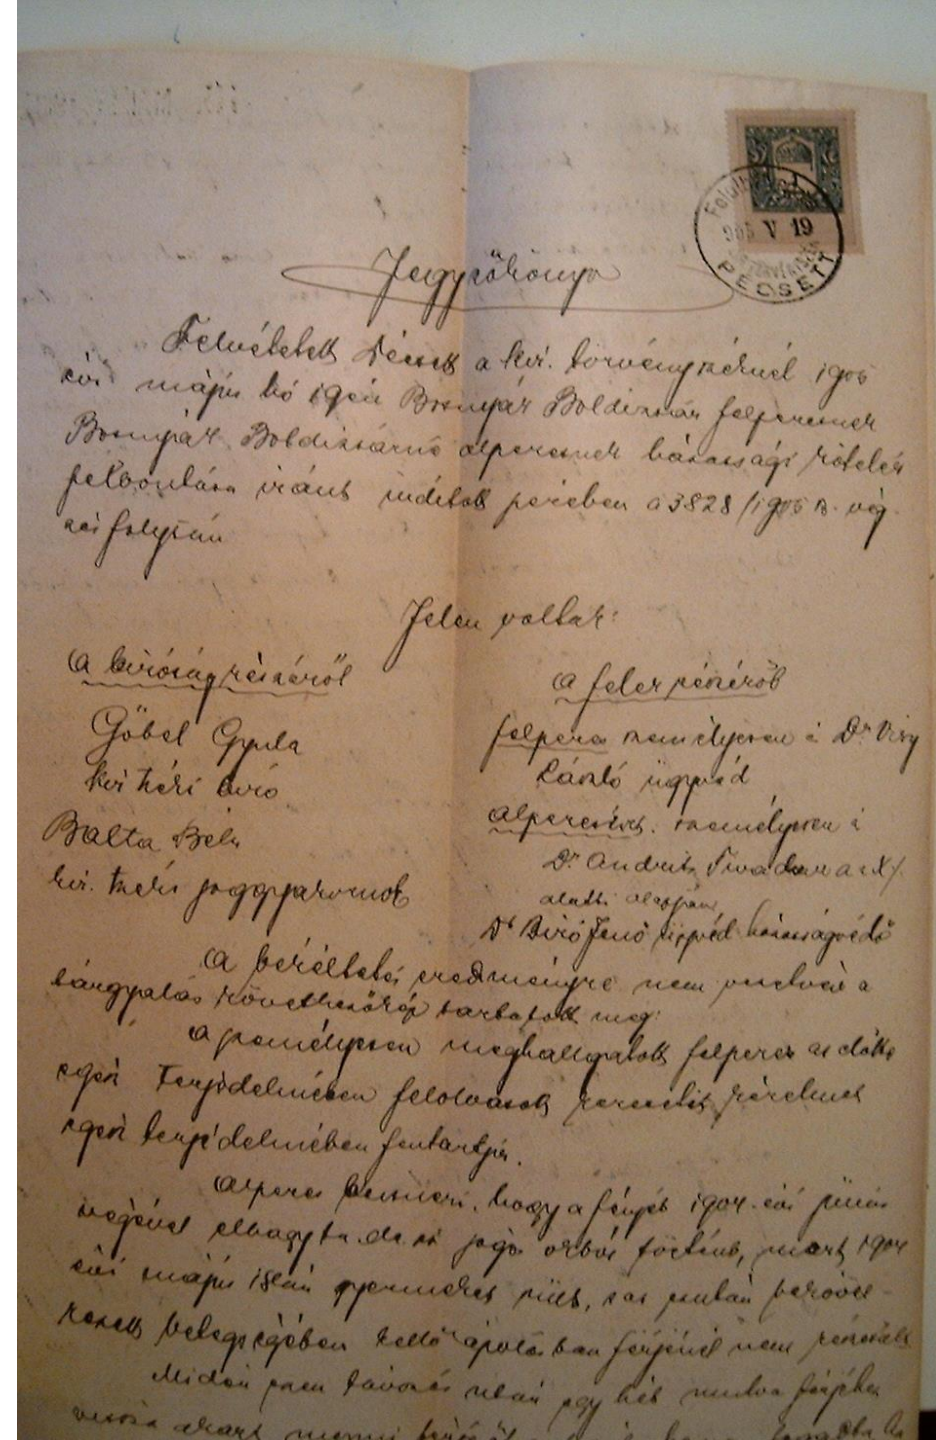 905 V 19
PECSETT
Jegyzőkönyv
Felvétetett Pécsett a kir. törvényszéknél 1905
évi május hó 19én Bosnyák Boldizsár felperesnek
Bosnyák Boldizsárné alperesnek házassági kötelék
felbontása iránt indított perében a 3828/1905 sz. vég
zés folytán
Jelen voltak:
A biróság részéről
Göbel Gyula
kir tszéki biró
Balta Béla
kir. tszéki joggyakornok
A felek részéről
felperes személyesen és Dr Visy
László ügyvéd
alperes személyesen és
Dr Andrits Tivadar a X/.
alatti alapján
Dr Biró Jenő ügyvéd házasságvédő
A békéltetés eredményre nem vezetvén a
tárgyalás következőkép tartatott meg:
A személyesen meghallgatott felperes az előtte
egész terjedelmében felolvasott kereseti kérelmet
egész terjedelmében fentartja.
Alperes beismeri, hogy a férjét 1904. évi junius
végével elhagyta de ez jogos okból történt, mert 1904
évi május 15én gyermeket szült, s az ezután bekövet-
kezett betegségében kellő ápolásban férjénél nem részesült
Midőn ezen távozás után egy hét mulva férjéhez
vissza akart menni